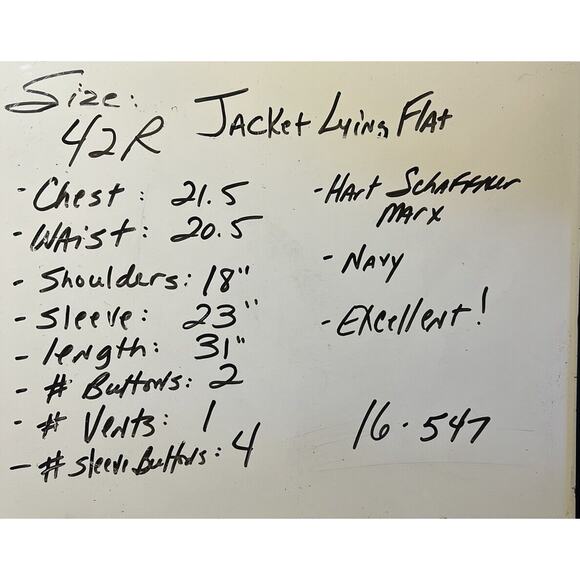 Size:
42R
Jacket Lying Flat
- Chest: 21.5
- Waist: 20.5
- Shoulders: 18"
- Sleeve: 23"
- length: 31"
- # Buttons: 2
- # Vents: 1
- # Sleeve Buttons: 4
- Hart Schaffner
Marx
- Navy
- Excellent!
16-547